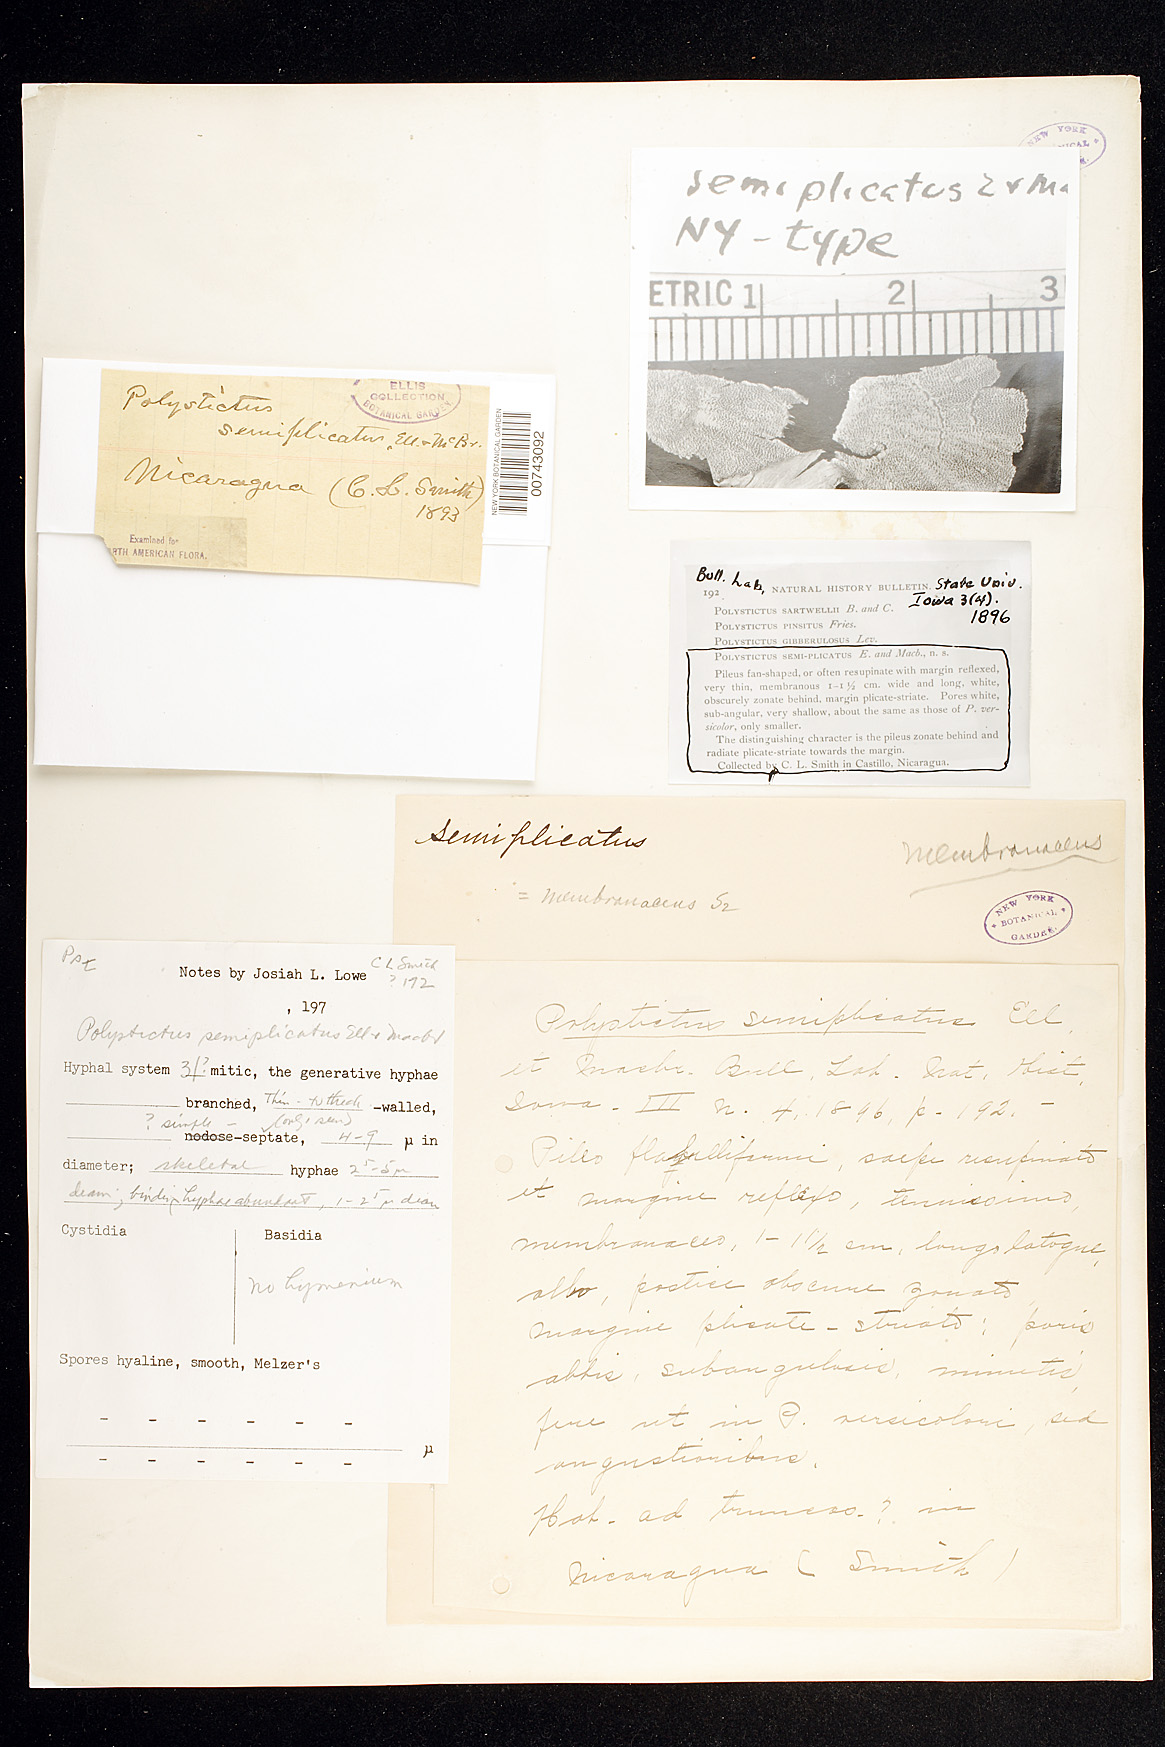 NEW YORK
semiplicatus
NY - type
ETRIC 1 2 3
Polystictus
ELLIS
COLLECTION
BOTANICAL GARDEN
semiplicatus, Ell. & McBr.
Nicaragua (C. L. Smith)
1893
Examined for
RTH AMERICAN FLORA.
NEW YORK BOTANICAL GARDEN
00743092
Bull. Lab. NATURAL HISTORY BULLETIN. State Univ.
192 Iowa 3(4).
1896
POLYSTICTUS SARTWELLII B. and C.
POLYSTICTUS PINSITUS Fries.
POLYSTICTUS GIBBERULOSUS Lev.
POLYSTICTUS SEMI-PLICATUS E. and Macb., n. s.
Pileus fan-shaped, or often resupinate with margin reflexed,
very thin, membranous 1-1½ cm. wide and long, white,
obscurely zonate behind, margin plicate-striate. Pores white,
sub-angular, very shallow, about the same as those of P. ver-
sicolor, only smaller.
The distinguishing character is the pileus zonate behind and
radiate plicate-striate towards the margin.
Collected by C. L. Smith in Castillo, Nicaragua.
semiplicatus
membranaceus
= membranaceus Sz
NEW YORK
BOTANICAL
GARDEN.
C L Smith
Notes by Josiah L. Lowe ? 192
, 197
Polystictus semiplicatus Ell & Macbr
Hyphal system 3/? mitic, the generative hyphae
branched, Thin - to thick -walled,
? simple - (only seen)
nodose-septate, 4-9 µ in
diameter; skeletal hyphae 2⁵-5µ
diam; binding hyphae abundant, 1-2⁵µ diam
Cystidia Basidia
no hymenium
Spores hyaline, smooth, Melzer's
- - - - - -
µ
- - - - - -
Polystictus semiplicatus Ell.
et Macbr. Bull. Lab. Nat. Hist.
Iowa - III n. 4, 1896, p. 192. -
Pileo flabelliformi, saepe resupinato
et margine reflexo, tenuissimo,
membranaceo, 1-1½ cm. longo latoque,
albo, postice obscure zonato
margine plicate-striato; poris
albis, subangulosis, minutis,
fere ut in P. versicolori, sed
angustioribus.
Hab. ad truncos.? in
Nicaragua (Smith)